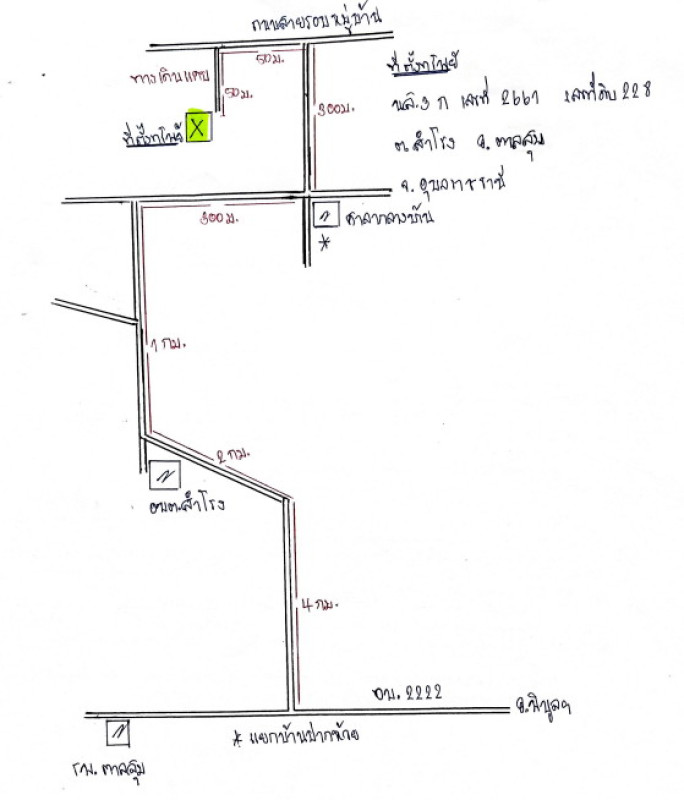 ถนนสายรอบหมู่บ้าน
50 ม.
ทางเดินแคบ
50 ม.
300 ม.
ที่ตั้งทรัพย์
ที่ตั้งทรัพย์
น.ส.3 ก เลขที่ 2667 เลขที่ดิน 228
ต.สำโรง อ.ตาลสุม
จ.อุบลราชธานี
300 ม.
ศาลากลางบ้าน
*
1 กม.
2 กม.
อบต.สำโรง
4 กม.
อบ. 2222
อ.พิบูลฯ
* แยกบ้านปากห้วย
รพ. ตาลสุม